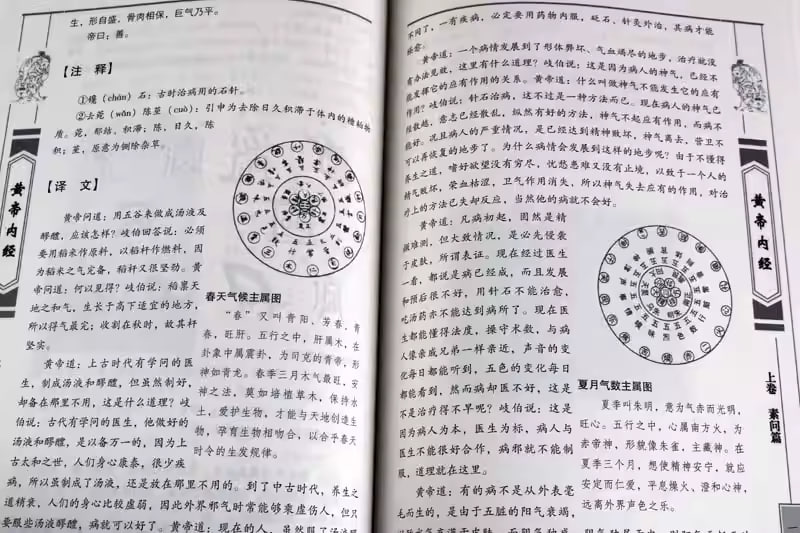 生，形自盛，骨肉相保，巨气乃平。
帝曰：善。
【注 释】
①镵（chán）石：古时治病用的石针。
②去菀（wǎn）陈莝（cuò）：引申为去除日久积滞于体内的糟粕物
质。菀，郁结，积滞；陈，日久，陈
积；莝，原意为铡除杂草。
【译 文】
黄帝问道：用五谷来做成汤液及
醪醴，应该怎样？岐伯回答说：必须
要用稻米作原料，以稻杆作燃料，因
为稻米之气完备，稻秆又很坚劲。黄
帝问道：何以见得？岐伯说：稻禀天
地之和气，生长于高下适宜的地方，
所以得气最完；收割在秋时，故其秆
坚实。
黄帝道：上古时代有学问的医
生，制成汤液和醪醴，但虽然制好，
却备在那里不用，这是什么道理？岐
伯说：古代有学问的医生，他做好的
汤液和醪醴，是以备万一的，因为上
古太和之世，人们身心康泰，很少疾
病，所以虽制成了汤液，还是放在那里不用的。到了中古时代，养生之
道稍衰，人们的身心比较虚弱，因此外界邪气时常能够乘虚伤人，但只
要服些汤液醪醴，病就可以好了。黄帝道：现在的人，虽然服了汤液醪
春天气候主属图
“春”又叫青阳、芳春，青
春，旺肝。五行之中，肝属木，在
卦象中属震卦，为司克的青帝，形
神如青龙。春季三月木气最旺，安
神之法，莫如培植草木，保持水
土，爱护生物，才能与天地创造生
物，孕育生物相吻合，以合乎春天
时令的生发规律。
黄帝内经
不同了，一有疾病，必定要用药物内服，砭石、针灸外治，其病才能
痊愈。
黄帝道：一个病情发展到了形体弊坏、气血竭尽的地步，治疗就没
有办法见效，这里有什么道理？岐伯说：这是因为病人的神气，已经不
能发挥它的应有作用的关系。黄帝道：什么叫做神气不能发生它的应有
作用？岐伯说：针石治病，这不过是一种方法而已。现在病人的神气已
经散越，意志已经散乱，纵然有好的方法，神气不起应有作用，而病不
能好。况且病人的严重情况，是已经达到精神败坏，神气离去，营卫不
可以再恢复的地步了。为什么病情会发展到这样的地步呢？由于不懂得
养生之道，嗜好欲望没有穷尽，忧愁患难又没有止境，以致于一个人的
精气败坏，荣血枯涩，卫气作用消失，所以神气失去应有的作用，对治
疗上的方法已失却反应，当然他的病就不会好。
黄帝道：凡病初起，固然是精
微难测，但大致情况，是必先侵袭
于皮肤，所谓表证。现在经过医生
一看，都说是病已经成，而且发展
和预后很不好，用针石不能治愈，
吃汤药亦不能达到病所了。现在医
生都能懂得法度，操守术数，与病
人像亲戚兄弟一样亲近，声音的变
化每日都能听到，五色的变化每日
都能看到，然而病却医不好，这是
不是治疗得不早呢？岐伯说：这是
因为病人为本，医生为标，病人与
医生不能很好合作，病邪就不能制
服，道理就在这里。
黄帝道：有的病不是从外表毫
毛而生的，是由于五脏的阳气衰竭，
夏月气数主属图
夏季叫朱明，意为气赤而光明，
旺心。五行之中，心属南方火，为
赤帝神，形貌像朱雀，主藏神。在
夏季三个月，想使精神安宁，就应
安定而仁爱，平息燥火、澄和心神，
远离外界声色之乐。
黄帝内经
上卷 素问篇